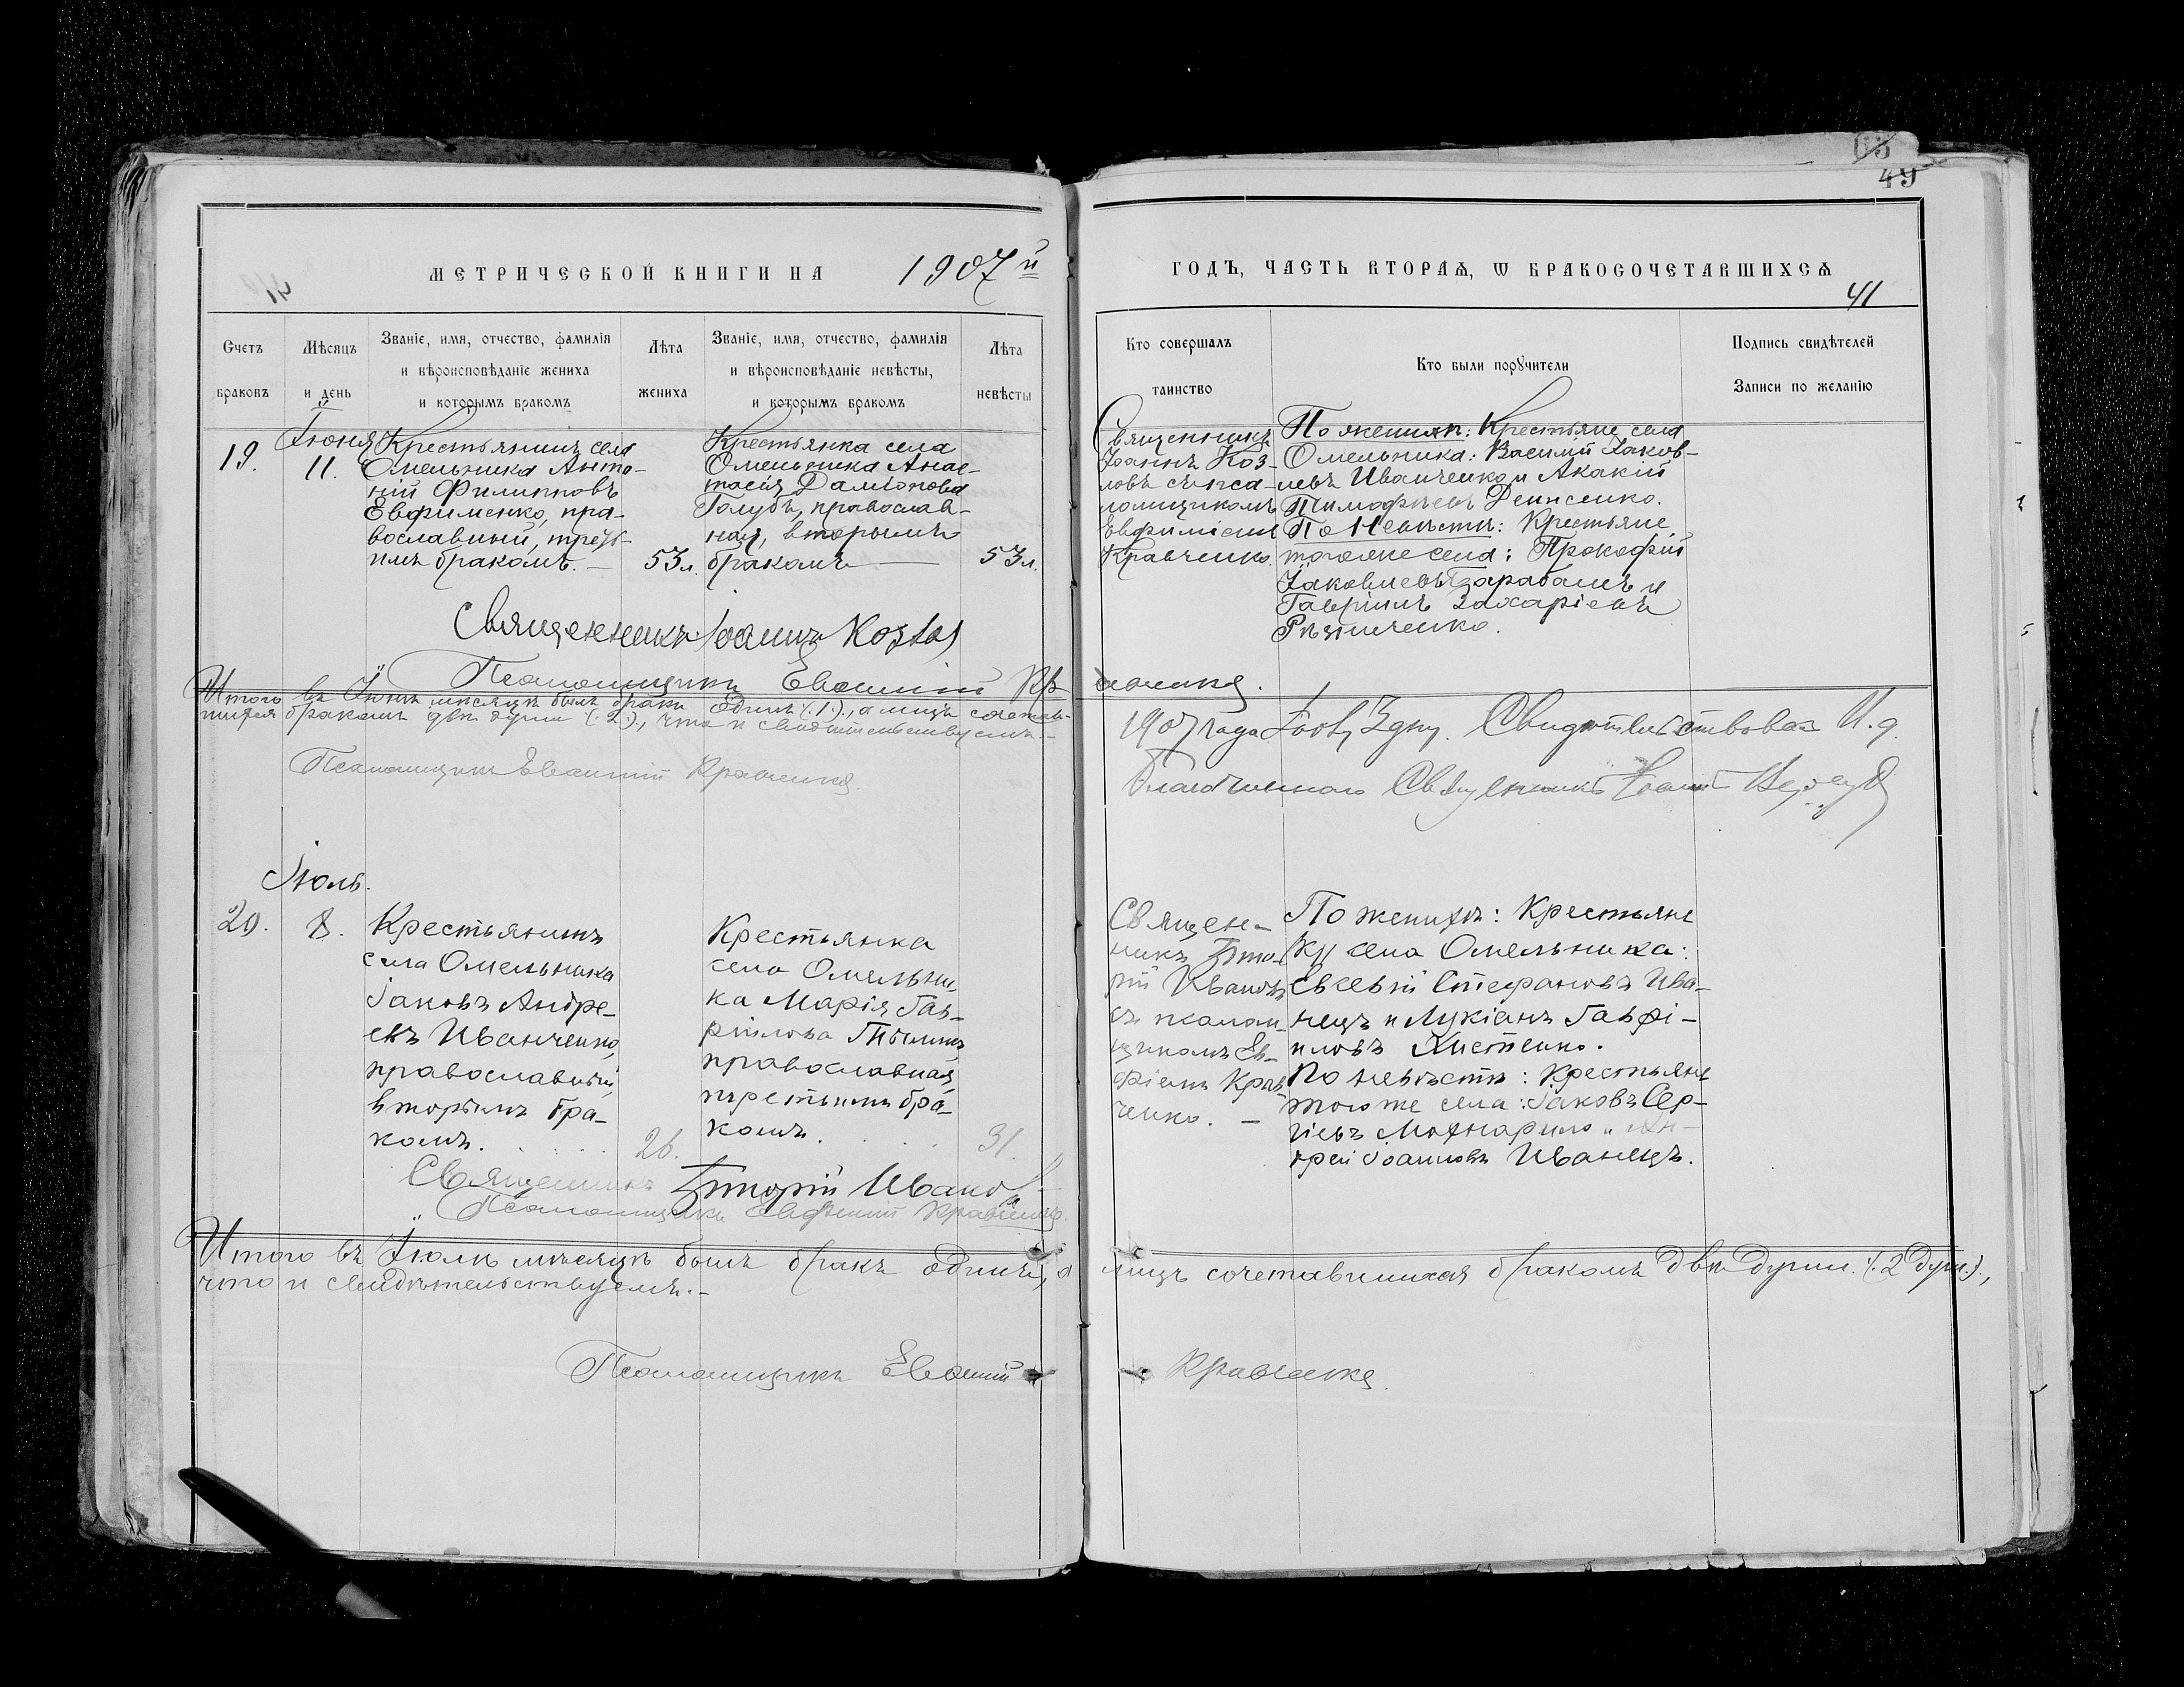 65
49
МЕТРИЧЕСКОЙ КНИГИ НА 1907й
ГОДЪ, ЧАСТЬ ВТОРАѦ, Ѡ БРАКОСОЧЕТАВШИХСѦ
41
Счетъ браковъ
Мѣсяцъ и день
Званіе, имя, отчество, фамилія
и вѣроисповѣданіе жениха
и которымъ бракомъ
Лѣта жениха
Званіе, имя, отчество, фамилія
и вѣроисповѣданіе невѣсты,
и которымъ бракомъ
Лѣта невѣсты
Кто совершалъ
таинство
Кто были порꙋчители
Подпись свидѣтелей
Записи по желанію
19.
Іюня
11.
Крестьянинъ села
Омельника Анто-
ній Филипповъ
Евфименко, пра-
вославный, треть-
имъ бракомъ.
53 л.
Крестьянка села
Омельника Анас-
тасія Даміанова
Голубъ, православ-
ная, вторымъ
бракомъ
53 л.
Священникъ
Іоаннъ Коз-
ловъ съ пса-
ломщикомъ
Евфиміемъ
Кравченко.
По женихѣ: Крестьяне села
Омельника: Василій Іаков-
левъ Иванченко и Акакій
Тимофѣевъ Денисенко.
По Невѣстѣ: Крестьяне
тогоже села: Прокофій
Іаковлевъ Барабашъ и
Гавріилъ Захаріевъ
Рѣзниченко.
Священникъ Іоаннъ Козлов
Псаломщикъ Евфимій Кравченко.
Итого въ Іюнѣ мѣсяцѣ былъ бракъ одинъ (.1.), а лицъ сочетав-
шихся бракомъ двѣ души (.2.), что и свидѣтельствуемъ.-
Псаломщикъ Евфимій Кравченко.
1907 года Свидѣтельствовалъ И. д.
Благочиннаго Священникъ Іоаннъ
Іюль.
20.
8.
Крестьянинъ
села Омельника
Іаковъ Андре-
евъ Иванченко,
православный
вторымъ бра-
комъ.
26.
Крестьянка
села Омельни-
ка Марія Гав-
рілова
православная,
третьимъ бра-
комъ.
31.
Священ-
никъ
рій Ивановъ
съ псалом-
щикомъ Ев-
фіемъ Крав-
ченко. -
По женихѣ: Крестьяне
села Омельника:
Евсевій Стефановъ Ива-
нецъ и Лукіанъ Гаврі-
иловъ
По невѣстѣ: Крестьяне
того же села: Іаковъ Сер-
гіевъ и Ан-
дрей Іоанновъ Иванецъ.
Священникъ Иванов
Псаломщикъ Евфимій Кравченко.
Итого въ Іюлѣ мѣсяцѣ былъ бракъ одинъ, а лицъ сочетавшихся бракомъ двѣ души. (.2 душ.).,
что и свидѣтельствуемъ.-
Псаломщикъ Евфимій Кравченко.